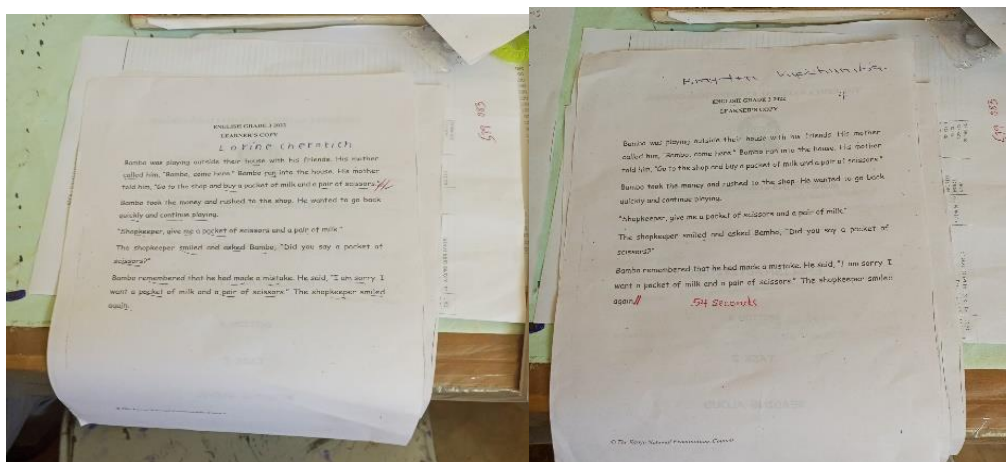 ENGLISH GRADE 3 2022
LEARNER'S COPY
Lorine Cherotich
Bambo was playing outside their house with his friends. His mother
called him, "Bambo, come here." Bambo ran into the house. His mother
told him, "Go to the shop and buy a packet of milk and a pair of scissors."
Bambo took the money and rushed to the shop. He wanted to go back
quickly and continue playing.
"Shopkeeper, give me a packet of scissors and a pair of milk."
The shopkeeper smiled and asked Bambo, "Did you say a packet of
scissors?"
Bambo remembered that he had made a mistake. He said, "I am sorry I
want a packet of milk and a pair of scissors." The shopkeeper smiled
again.
© The Kenya National Examinations Council
ENGLISH GRADE 3 2022
LEARNER'S COPY
Bambo was playing outside their house with his friends. His mother
called him, "Bambo, come here." Bambo ran into the house. His mother
told him, "Go to the shop and buy a packet of milk and a pair of scissors."
Bambo took the money and rushed to the shop. He wanted to go back
quickly and continue playing.
"Shopkeeper, give me a packet of scissors and a pair of milk."
The shopkeeper smiled and asked Bambo, "Did you say a packet of
scissors?"
Bambo remembered that he had made a mistake. He said, "I am sorry I
want a packet of milk and a pair of scissors." The shopkeeper smiled
again
54 seconds
© The Kenya National Examinations Council